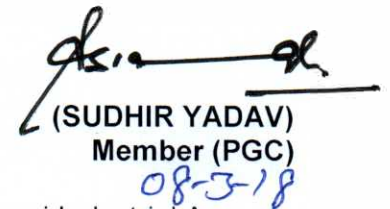 (SUDHIR YADAV)
Member (PGC)
08-3-18